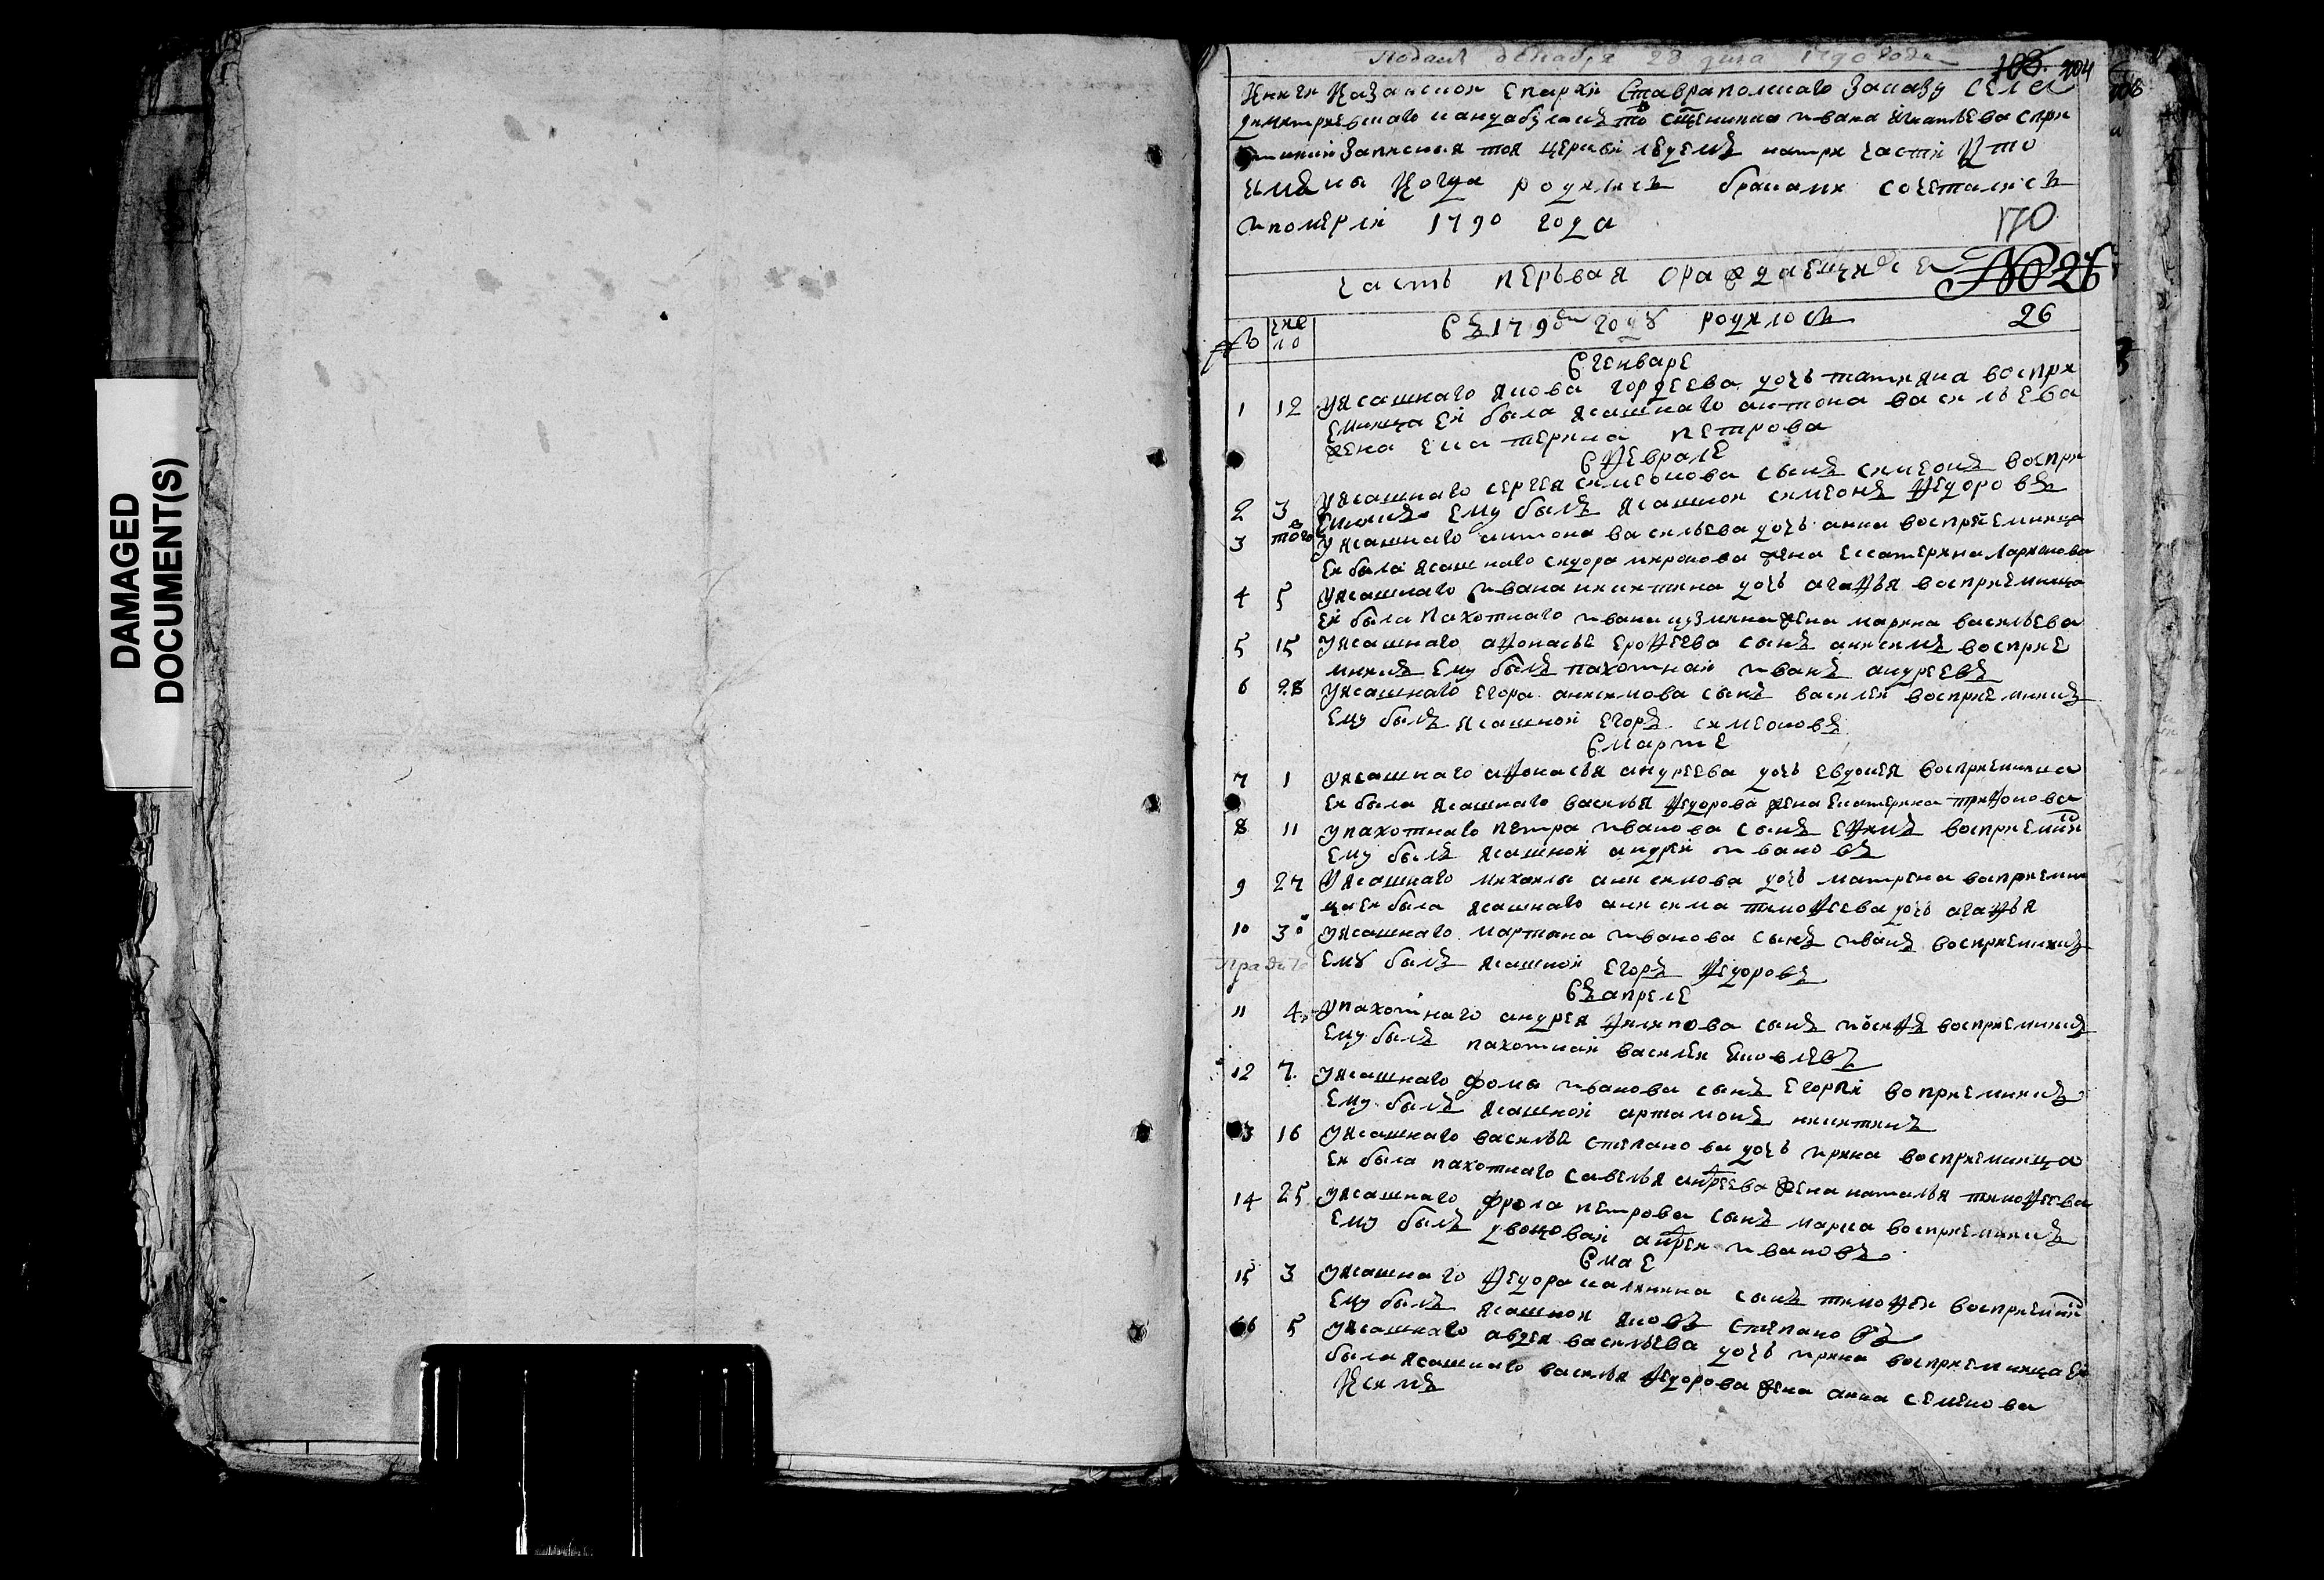 DAMAGED
DOCUMENT(S)
Подана декабря 28 дня 1790 года
108. 204
Книги Казанской Епархи Ставрапольскаго Заказу села
димитревскаго тож священника ивана игнатьева спри
записныя тоя церкви людемъ натри части кто
имены когда родились браками сочетались
ипомерли 1790 года
170
часть первая ораждающихся №26
№ число Въ 1790м году родилось 26
В генваре
1 12 Уясашнаго якова гордеева дочь татияна воспри
емница ей была ясашнаго антона васильева
жена екатерина петрова
В феврале
2 3 Уясашнаго сергея симеонова сынъ симеонъ воспри
емникъ ему былъ ясашной симеонъ федоровъ
3 того Уясашнаго антона васильева дочь анна восприемница
ей была ясашнаго сидора миронова жена екатерина ларионова
4 5 Уясашнаго ивана никитина дочь агафья восприемница
ей была пахотнаго ивана кузмина жена марина васильева
5 15 Уясашнаго афонасье ерофеева сынъ анисимъ восприе
микъ ему былъ пахотнай иванъ андреевъ
6 28 Уясашнаго егора анисимова сынъ василей восприемникъ
ему былъ ясашной егоръ симеоновъ
В марте
7 1 Уясашнаго афонасья андреева дочь евдокея восприемница
ей была ясашнаго василья федорова жена екатерина трифонова
8 11 Упахотнаго петра иванова сынъ ефимъ восприемник
ему былъ ясашной андрей ивановъ
9 27 Уясашнаго михаила анисимова дочь матрена воприемни
ца ей была ясашнаго анисима тимофеева дочь агафья
10 30 Уясашнаго мартина иванова сынъ иванъ восприемникъ
ему былъ ясашной егоръ федоровъ
Въ апреле
11 4 Упахотнаго андрея филипова сынъ иосифъ восприемникъ
ему былъ пахотнай василей яковлевъ
12 7. Уясашнаго фомы иванова сынъ егорий воприемникъ
ему былъ ясашной артамонъ никитинъ
13 16 Уясашнаго василья степанова дочь ирина восприемница
ей была пахотнаго савелья андреева жена наталья тимофеева
14 25. Уясашнаго фрола петрова сынъ марка восприемникъ
ему былъ дворцовай андрей ивановъ
В мае
15 3 Уясашнаго федора калинина сынъ тимофей восприемник
ему былъ ясашной яковъ степановъ
16 5 Уясашнаго авдея васильева дочь ирина восприемница ей
была ясашнаго василья федорова жена анна семенова